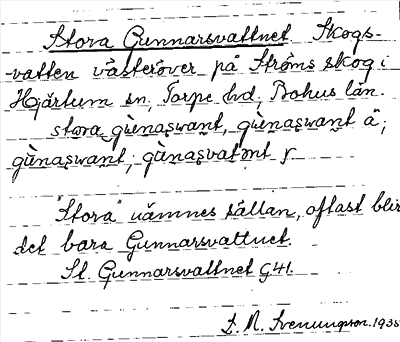 Stora Gunnarsvattnet Skogs-
-vatten västeröver på Ströms skog i
Hjärtum sn, Torpe hd, Bohus län.
stora gùnaṣwant, gùnaṣwant ä;
gùnaṣwant; gùnaṣvatnt r
"Stora" nämnes sällan, oftast blir
det bara Gunnarsvattnet.
St. Gunnarsvattnet G41.
F. N. Svenungson. 1935